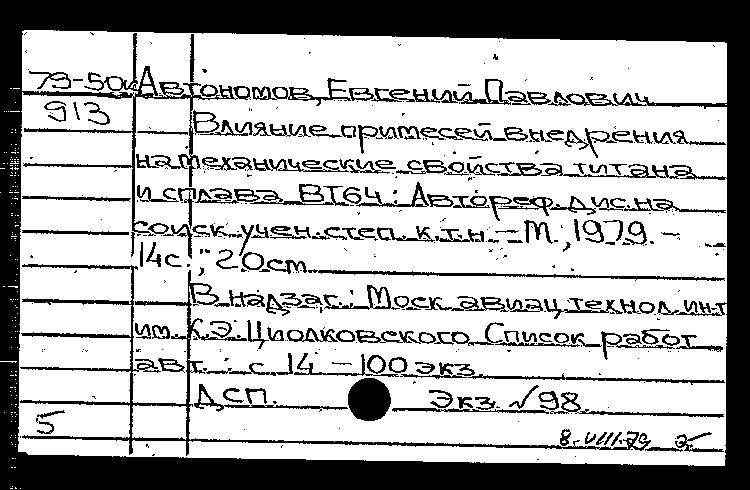 79-50к Автономов, Евгений Павлович
913 Влияние примесей внедрения
на механические свойства титана
и сплава ВТ64: Автореф. дис. на
соиск. учен. степ. к.т.н. – М., 1979. –
14с.; 20см
В надзаг.: Моск. авиац. технол. ин-т
им. К.Э. Циолковского. Список работ
авт.: с 14 – 100 экз.
ДСП. Экз. √98.
5
8.VIII.79